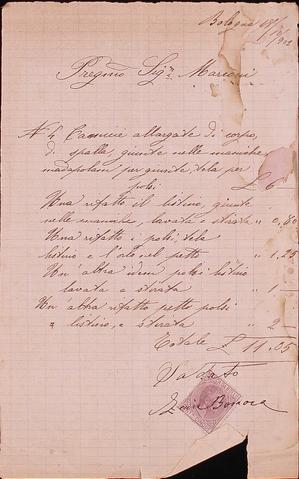 Bologna
Pregmo Sigr. Marconi
N 4 Camicie allargate di corpo,
di spalla, giunte nelle maniche
madapolam per giunte, tela per
polsi £ 6
Una rifatto il listino, giunte
nelle maniche, lavata e stirata " 0,80
Una rifatto i polsi, tela
listino e nel petto " 1,25
Un' altra idem polsi listino
lavata e stirata " 1
Un' altra rifatto petto polsi
e listino, e stirata " 2
Totale £ 11.05
Saldato